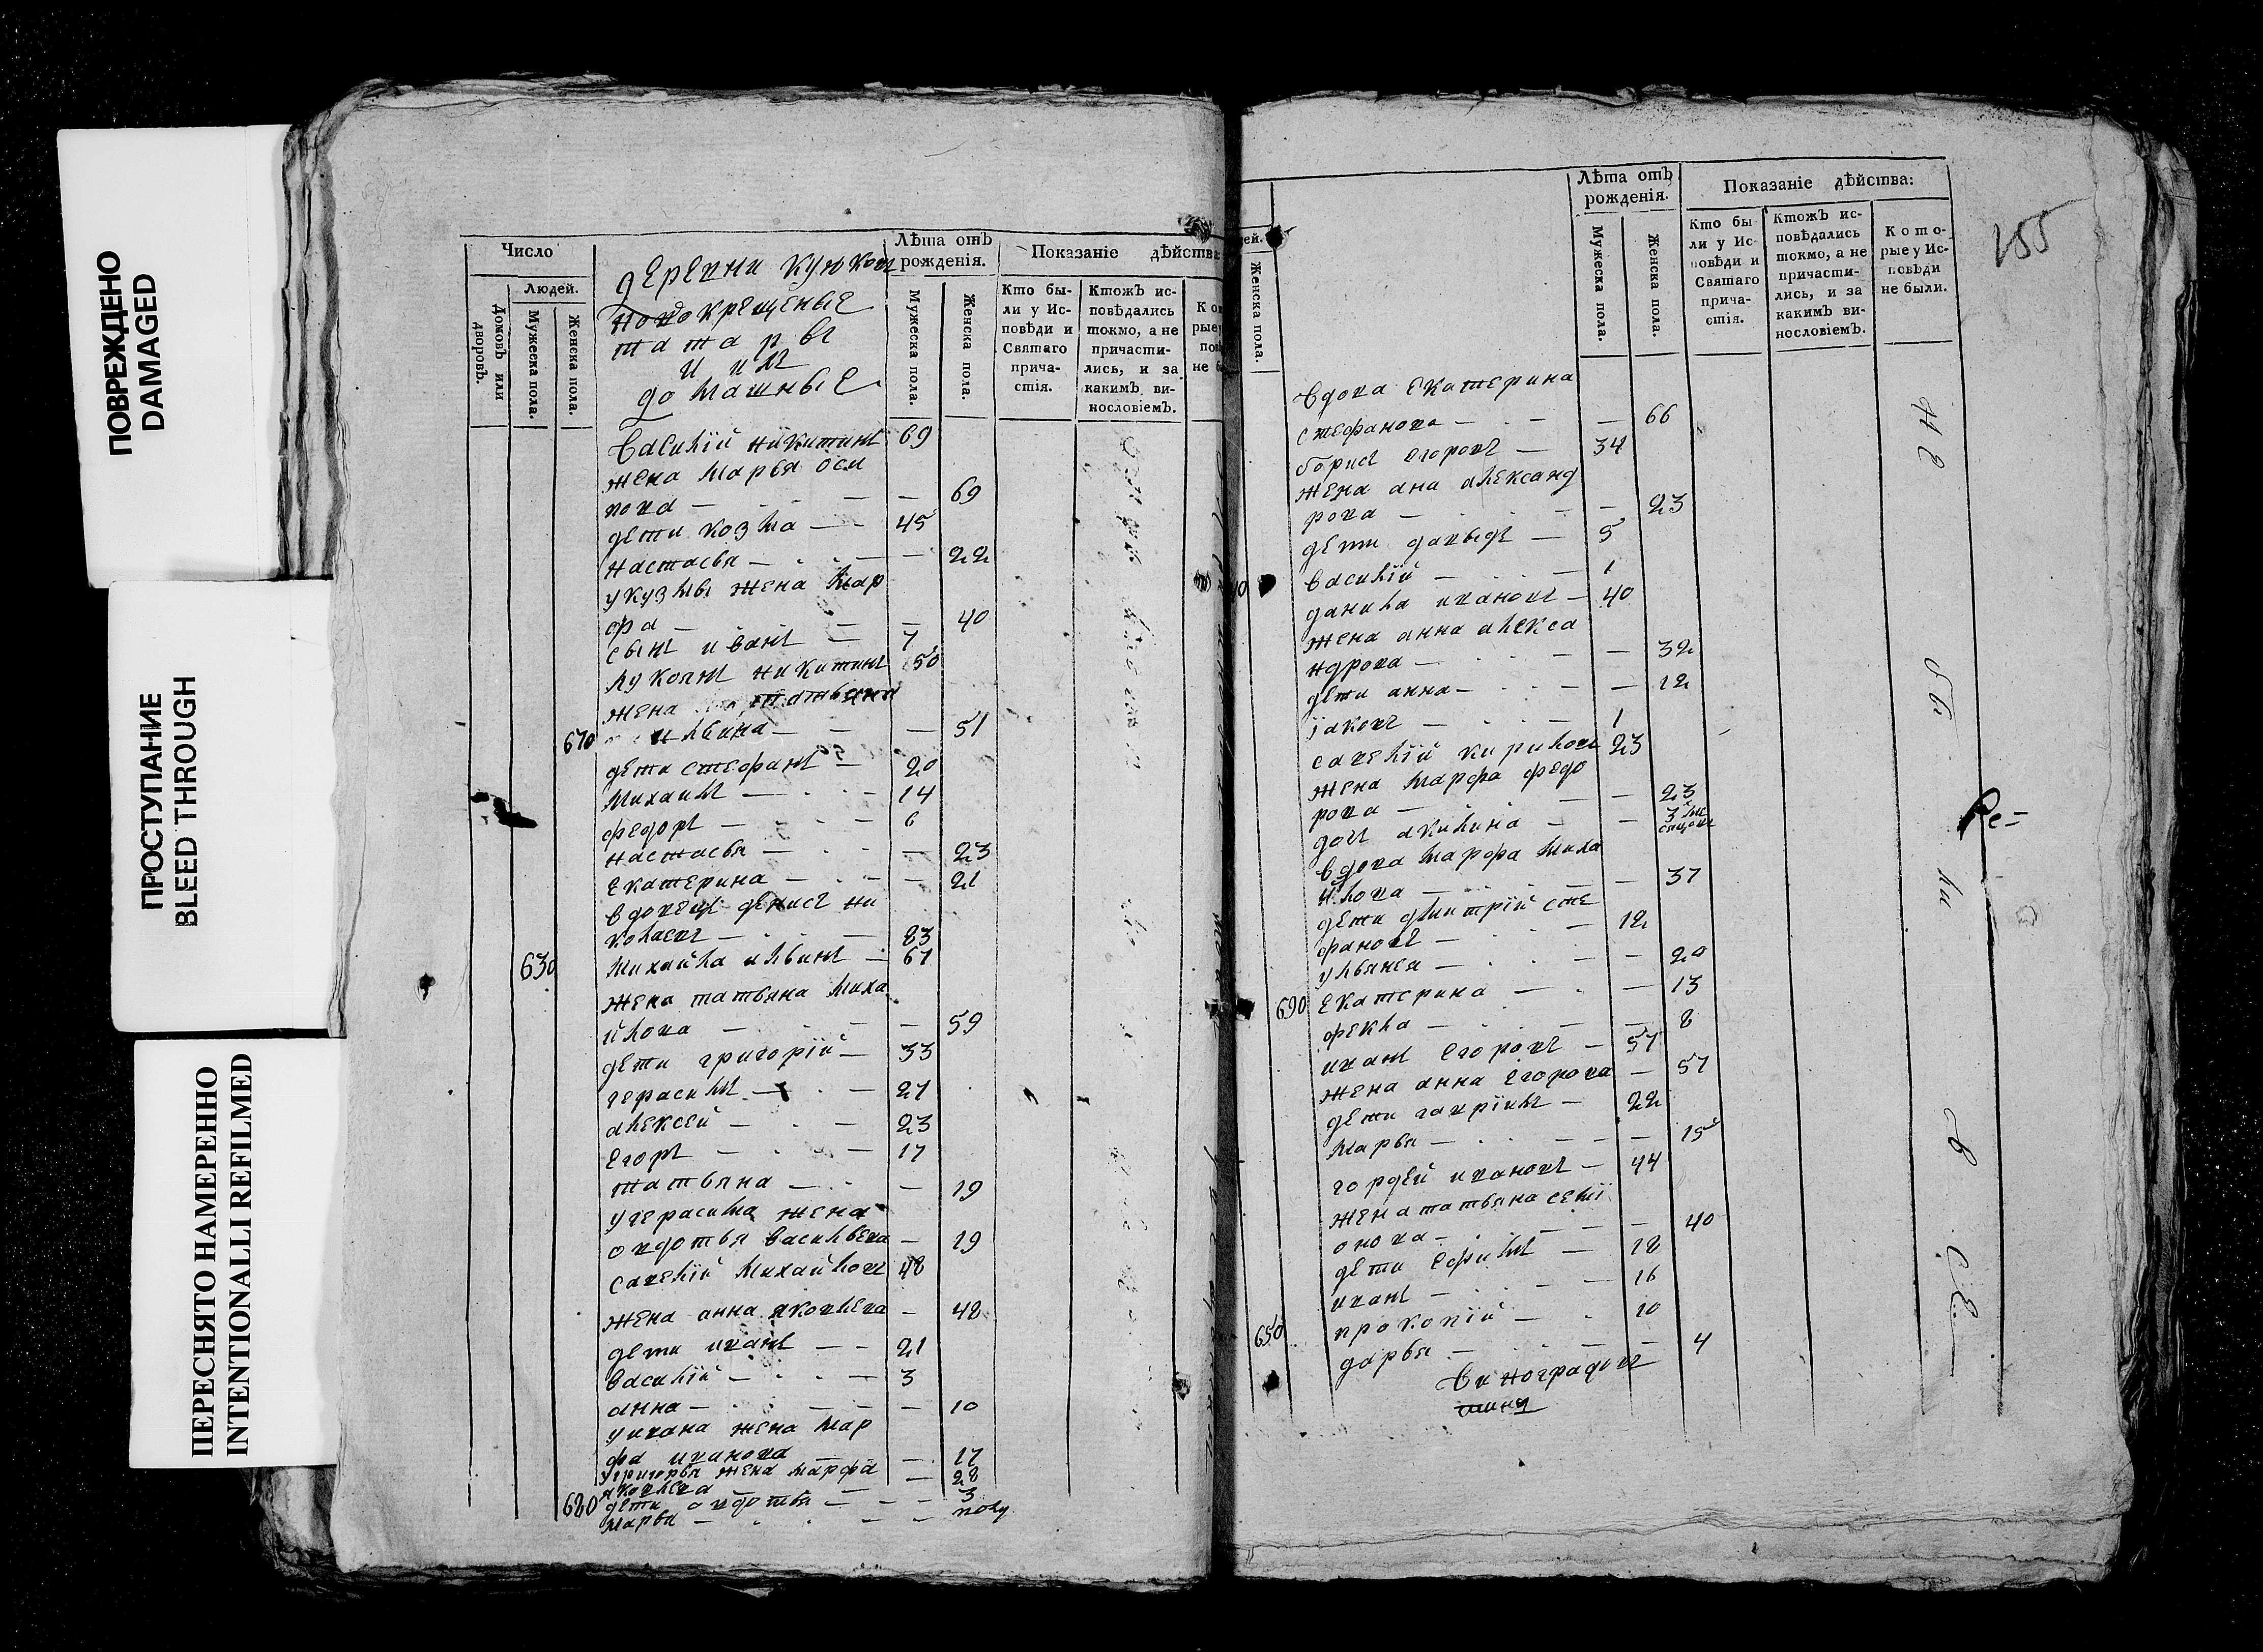 ПОВРЕЖДЕНО
DAMAGED
ПРОСТУПАНИЕ
BLEED THROUGH
ПЕРЕСНЯТО НАМЕРЕННО
INTENTIONALLI REFILMED
Число
Людей.
Домовъ или дворовъ.
Мужеска пола.
Женска пола.
деревни кукковъ
новокрещеные
татаръ
и ихъ
домашные
Лѣта отъ рожденія.
Мужеска пола.
Женска пола.
Показаніе дѣйства
Кто бы-
ли у Ис-
повѣди и
Святаго
прича-
стія.
Ктожъ ис-
повѣдались
токмо, а не
причасти-
лись, и за
какимъ ви-
нословіемъ.
василій никитинъ 69
жена марья оси
пова — 69
дети козма — 45
настасья — 22
укузмы жена мар
фа — 40
сынъ иванъ — 7
лукоянъ никитинъ 50
жена татьяна
670 ильина — 51
дети стефанъ — 20
михаилъ — 14
федоръ — 6
настасья — 23
екатерина — 21
вдовецъ денисъ ни
колаевъ — 83
630 михайла ильинъ — 61
жена татьяна миха
йлова — 59
дети григорїй — 33
герасимъ — 27
алексей — 23
егоръ — 17
татьяна — 19
угерасима жена
овдотья васильева — 19
савелїй михайловъ 48
жена анна яковлева — 48
дети иванъ — 21
василїй — 3
анна — 10
уивана жена мар
фа иванова — 17
угригорья жена марфа — 28
яковлева
680 дети овдотья — 3
марья — полу
Женска пола.
Лѣта отъ
рожденія.
Мужеска пола.
Женска пола.
Показаніе дѣйства:
Кто бы-
ли у Ис-
повѣди и
Святаго
прича-
стія.
Ктожъ ис-
повѣдались
токмо, а не
причасти-
лись, и за
какимъ ви-
нословіемъ.
К о т о-
рые у Ис-
повѣди
не были.
155
вдова екатерина
стефанова — 66
борисъ егоровъ — 34
жена ана александ
рова — 23
дети давыдъ — 5
василїй — 1
данила ивановъ — 40
жена анна алекса
ндрова — 32
дети анна — 12
їаковъ — 1
савелїй кириловъ 23
жена марфа федо
рова — 23
дочь акилина — 3 ме
сяцовъ
вдова марфа миха
йлова — 37
дети дмитрїй сте
фановъ — 12
ульянея — 20
690 екатерина — 13
фекла — 8
иванъ егоровъ — 57
жена анна егорова — 57
дети гаврїилъ — 22
марья — 15
гордей ивановъ — 44
жена татьяна семї
онова — 40
дети ефимъ — 18
иванъ — 16
650 прокопїй — 10
дарья — 4
Виноградовъ
не
бы
ли
в
се
Ре=